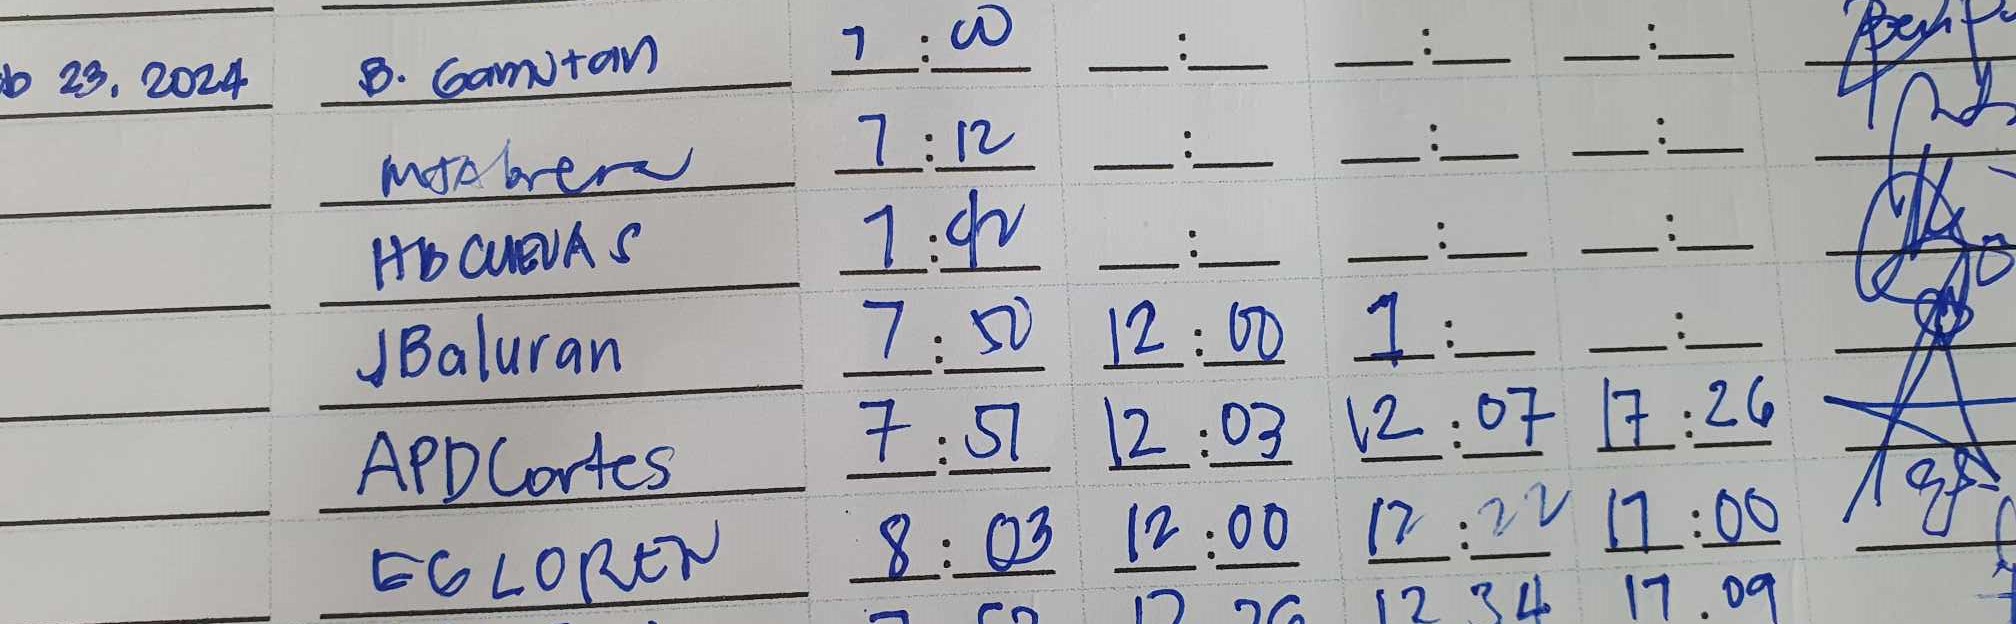 23, 2024 B. Gamutan 7:00
7:12
HB CUEVAS 7:42
JBaluran 7:50 12:00 1:
APDCortes 7:51 12:03 12:07 17:26
EGLOREN 8:03 12:00 12:22 17:00
12 34 17.09